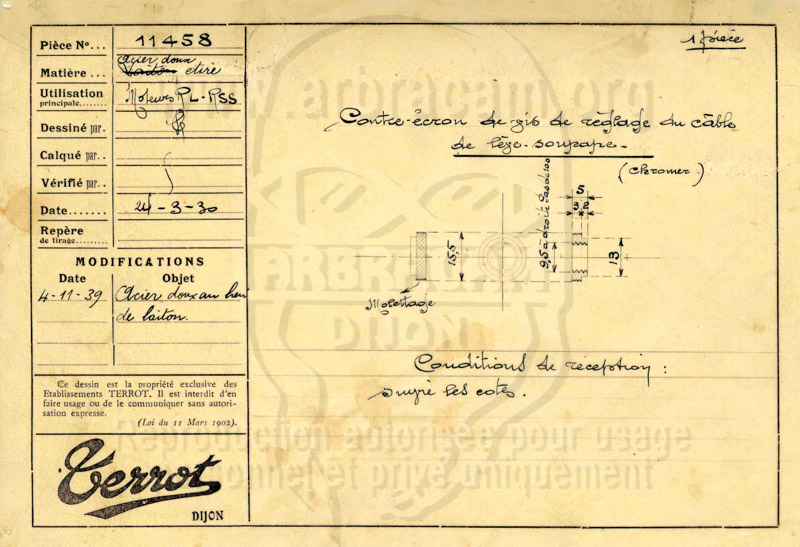 Pièce N°... 11458
Acier doux
Matière ... Laiton etiré
Utilisation
principale....... Moteurs RL-RSS
Dessiné par.
Calqué par..
Vérifié par..
Date....... 24-3-30
Repère
de tirage........
MODIFICATIONS
Date Objet
4-11-39 Acier doux au lieu
de laiton.
Ce dessin est la propriété exclusive des
Etablissements TERROT. Il est interdit d'en
faire usage ou de le communiquer sans autori-
sation expresse.
(Loi du 11 Mars 1902).
Terrot
DIJON
1 pièce
Contre-écrou de vis de réglage du câble
de lève-soupape.
(chromer)
5
3,2
15,5
9,5 à droite
13
Molettage
Conditions de réception :
suivre les cotes.
www.arbracam.org
DIJON
Reproduction autorisée pour usage
personnel et privé uniquement